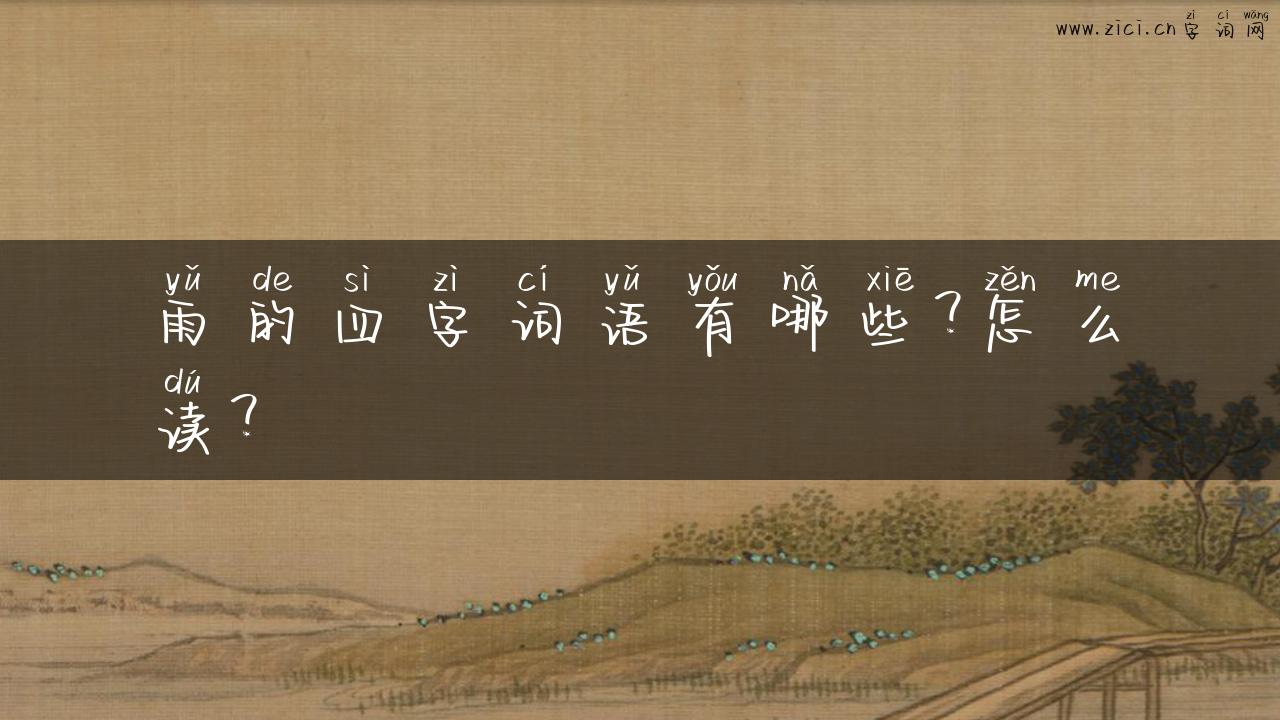 zì cí wǎng
www.zici.cn字词网
yǔ de sì zì cí yǔ yǒu nǎ xiē zěn me
雨的四字词语有哪些？怎么
dú
读？